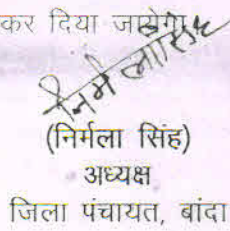 कर दिया जायेगा
निर्मला सिंह
(निर्मला सिंह)
अध्यक्ष
जिला पंचायत, बांदा